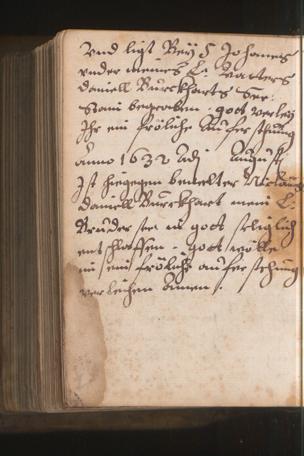 Vnd ligt Bey S Johannes
vnder meines L. Vatters
Daniell Burckharts See:
Stain begraben. gott verley
Ihr ein fröliche Aufersthung
Anno 1632 Adj Augusti
Ist hiegegen bemelter
Daniell Burckhart mein L.
Bruder see in gott seliglich
entschlaffen. gott wölle
im ein fröliche auferstehung
verleichen Amen.